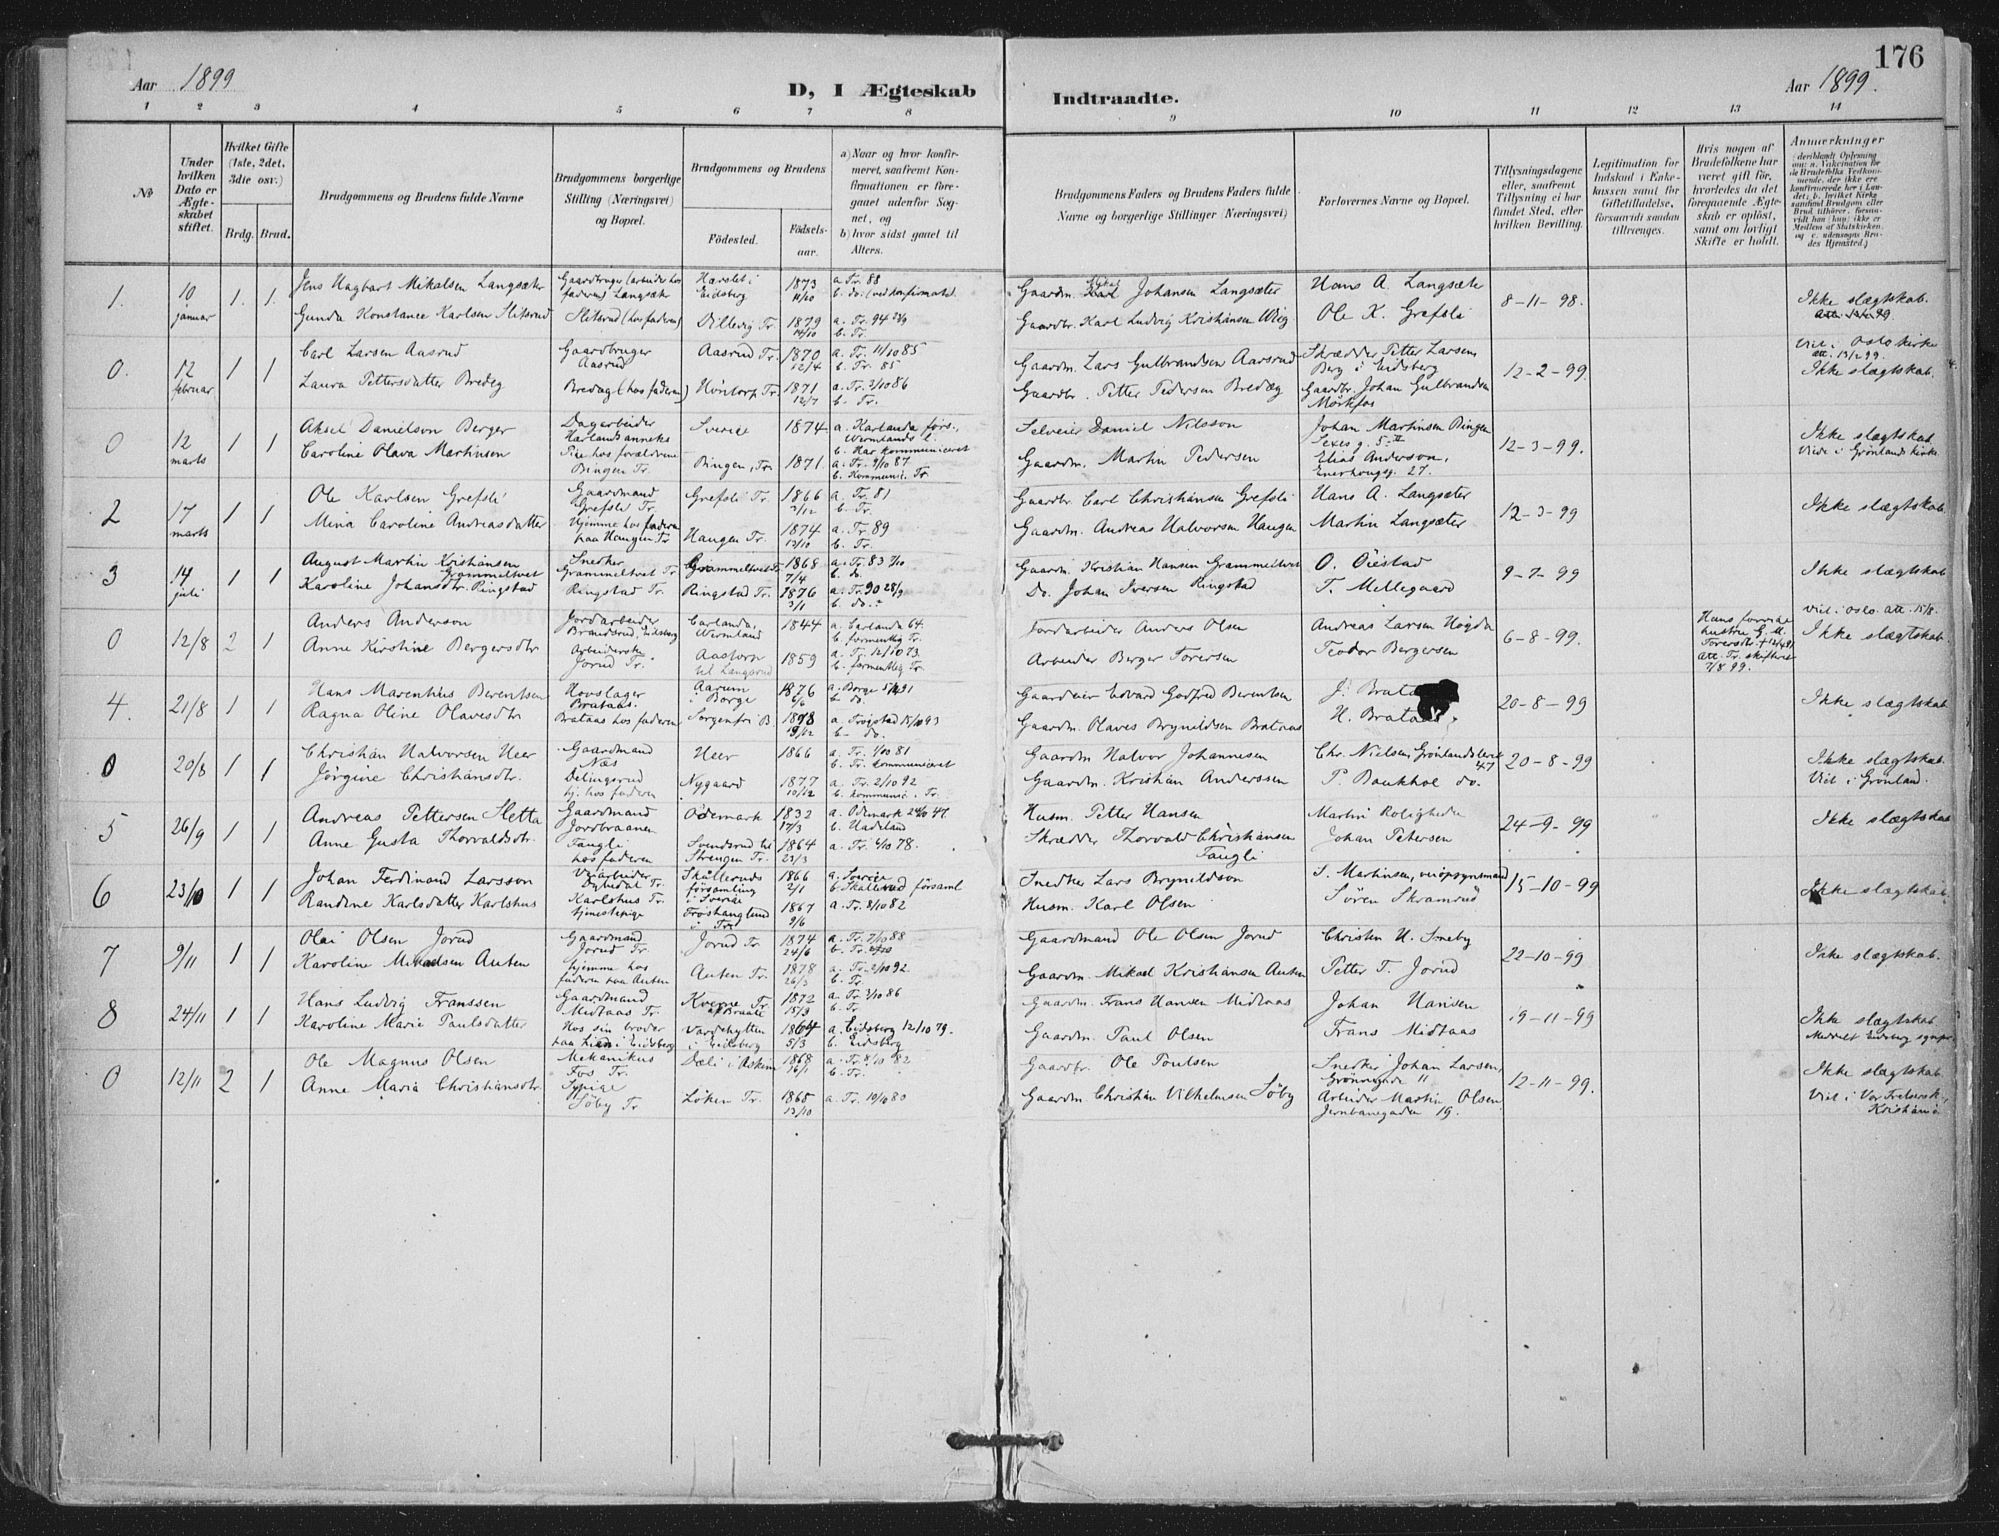 176
Aar 1899
D, I Ægteskab
Indtraadte.
Aar 1899.
1 2 3 4 5 6 7 8 9 10 11 12 13 14
No
Under hvilken Dato er Ægteskabet stiftet.
Hvilket Gifte (1ste, 2det, 3die osv.)
Brdg. Brud.
Brudgommens og Brudens fulde Navne
Brudgommens borgerlige Stilling (Næringsvei) og Bopæl.
Brudgommens og Brudens
Fødested.
Fødselsaar.
a) Naar og hvor konfirmeret, saafremt Konfirmationen er foregaaet udenfor Sognet, og
b) hvor sidst gaaet til Alters.
Brudgommens Faders og Brudens Faders fulde Navne og borgerlige Stillinger (Næringsvei)
Forlovernes Navne og Bopæl.
Tillysningsdagene eller, saafremt Tillysning ei har fundet Sted, efter hvilken Bevilling.
Legitimation for Indskud i Enkekassen samt for Giftetilladelse, forsaavidt saadan tiltrænges.
Hvis nogen af Brudefolkene har været gift før, hvorledes da det foregaaende Ægteskab er opløst, samt om lovligt Skifte er holdt.
Anmærkninger
1. 10 januar 1. 1. Jens Hagbart Mikalsen Langsæter Gaardbruger (arbeider hos faderen) Langsæter Hærslet i Eidsberg 1873 11/10 a Tr. 88 b. do. (ved konfirmation) Gaardm. Johansen Langsæter Hans A. Langsæter 8-11-98. Ikke slægtskab.
Gunda Konstance Karlsen Slitsrud Slitsrud (hos faderen) Dillevig Tr. 1879 14/10 a. Tr. 94 b. Tr. Gaardbr. Karl Ludvig Kristiansen Ole K. Grefsli
0. 12 februar 1 1 Carl Larsen Aasrud Gaardbruger Aasrud Aasrud Tr. 1870 12/4 a. Tr. 11/10 85 b. Tr. 85 Gaardm. Lars Gulbrandsen Aarsrud Skrædder Petter Larsen Berg i Eidsberg 12-2-99. Viet i Oslo kirke att. 13/2 99. Ikke slægtskab.
Laura Pettersdatter Bredeg Bredag (hos faderen) Höntorp Tr. 1871 12/7 a. Tr. 2/10 86 b. Tr. Gaardbr. Petter Pedersen Bredæg Gaardbr. Johan Gulbrandsen Mörkfos
0 12 marts 1 1 Aksel Danielson Berger Dagarbeider Harlands anneks Sverige 1874 a. Karlanda förs., Wermlands l. b. Har kommuniceret Selveier Daniel Nilsson Johan Martinsen Bingen 12-3-99. Ikke slægtskab
Caroline Olava Martinsen Pige hos forældrene Bingen Tr. Bingen, Tr. 1871. a. Tr. 9/10 87. b. Kommunic. Tr. Gaardm. Martin Pedersen Elias Anderson, Enerhougsg. 27. Viede i Grönlands kirke
2 17 marts 1 1 Ole Karlsen Grefsli Gaardmand Grefsli Tr. Grefsli Tr. 1866 3/12 a. Tr. 81 b. Tr. Gaardbr. Carl Christiansen Grefsli Hans A. Langsæter 12-3-99 Ikke slægtskab.
Mina Caroline Andreasdatter Hjemme hos faderen paa Haugen Tr Haugen Tr. 1874 13/10 a. Tr. 89 b. Tr. Gaardm. Andreas Halvorsen Haugen Martin Langsæter
3 14 juli 1 1 August Martin Kristiansen Grammeltvet Snedker Grammeltvet Tr. Grammeltvet Tr. 1868 7/4 a. Tr. 83 b. do. Gaardm. Kristian Hansen Grammeltvet O. Öiestad 9-7-99 Ikke slægtskab
Karoline Johansdtr. Ringstad Ringstad Tr. Ringstad Tr. 1876 3/1 a. Tr. 90 28/9 b. do. Do. Johan Iversen Ringstad T. Mellegaard
0 12/8 2 1 Anders Anderson Jordarbeider Brandsrud, Eidsberg Carlanda, Wermland 1844 a. Carlanda 64. b. formentlig Tr. Jordarbeider Anders Olsen Andreas Larsen Högda 6-8-99. viet i Oslo att. 15/8. Ikke slægtskab.
Anne Kirstine Bergersdtr Arbeiderske Jorud Tr. Aastorp til Langsrud 1859 a. Tr. 12/10 73. b. formentlig Tr. Arbeider Berger Torersen Teodor Bergersen
Att. Tr. skifteret 7/8 99.
4. 21/8 1 1 Hans Marentius Berentsen Hovslager Brataas. Aarum i Borge 1876 6/6 a. Borge 91 b. do. Gaardeier Edvard Godfred Berentsen J. 20-8-99 Ikke slægtskab
Ragna Oline Olavesdtr Brataas hos faderen Sorgenfri B. 19/12 a. Trögstad 15/10 93 b. do. Gaardm. Olaves Bryneldsen Brataas H. Brataas.
0 20/8 1 1 Christian Halvorsen Heer Gaardmand Næs Heer 1866 a. Tr. 1/10 81 b. Tr. kommuniceret Gaardm Halvor Johannesen Chr. Nielsen, Grönlandsleret 47 20-8-99 Ikke slægtskab.
Jörgine Christiansdtr. Delingsrud hj. hos faderen Nygaard 1877 10/12 a. Tr. 2/10 92 b. kommunic. i Tr. Gaardm. Kristian Anderssen P. Baukhol do. Viet i Grönland.
5 26/9 1 1 Andreas Pettersen Sletta Gaardmand Jordbraanen Ödemark 1832 17/3 a. Ödemark 47 b. Hadeland Husm. Petter Hansen Martin Roligheden 24-9-99 Ikke slægtskab
Anne Gusta Thorvaldsdtr. Taugli hos faderen Svendsrud til Strengen Tr. 1864 23/3 a. Tr. 78. Skrædder Thorvald Christiansen Taugli Johan Petersen
6 23/10 1 1 Johan Ferdinand Larsson Veiarbeider Dybedal Tr. Skilleruds församling i Sverige 1866 2/1 a. Sverige b. Skillerud församl Snedker Lars Bryneldson S. Martinsen, veiopsynsmand 15-10-99 Ikke slægtskab.
Randine Karlsdatter Karlshus Karlshus Tr. tjenestepige Froshaug i Tr. 1867 9/6 a. Tr. 8/10 82 Husm. Karl Olsen Sören Skramrud
7 9/11 1 1 Olai Olsen Jorud Gaardmand Jorud Tr. Jorud Tr 1874 24/6 a. Tr. 7/10 88 b. Tr. Gaardmand Ole Olsen Jorud Christen H. Sneby 22-10-99 Ikke slægtskab.
Karoline Mikaelsen Auten hjemme hos faderen paa Auten Auten Tr. 1878 26/3 a. Tr. 2/10 92. b. Tr. Gaardm. Mikael Kristiansen Auten Petter T. Jorud
8 24/11 1 1 Hans Ludvig Franssen Gaardmand Midtaas Tr. 1872 15/3 a. Tr. 3/10 86 b. Tr Gaardm. Frans Hansen Midtaas Johan Hansen 19-11-99 Ikke slægtskab
Karoline Marie Paulsdatter Hos sin broder paa Lien i Eidsberg Vardehytten i Eidsberg 1864 5/3 a. Eidsberg 12/10 79. b. Eidsberg Gaardm. Paul Olsen Frans Midtaas
0 12/11 2 1 Ole Magnus Olsen Mekanikus Fos Tr. Dæli i Askim 1868 16/1 a. Tr. 8/10 82 b. Tr. Gaardbr. Ole Poulsen Snedker Johan Larsen, 11 12-11-99. Ikke slægtskab.
Anne Maria Christiansdtr. Sypige Söby Tr Löken Tr. 1865 13/10 a. Tr. 10/10 80 Gaardm. Christian Vilhelmsen Söby Arbeider Martin Olsen Jernbanegaden 19. Viet i Vor Frelsersk., Kristiania